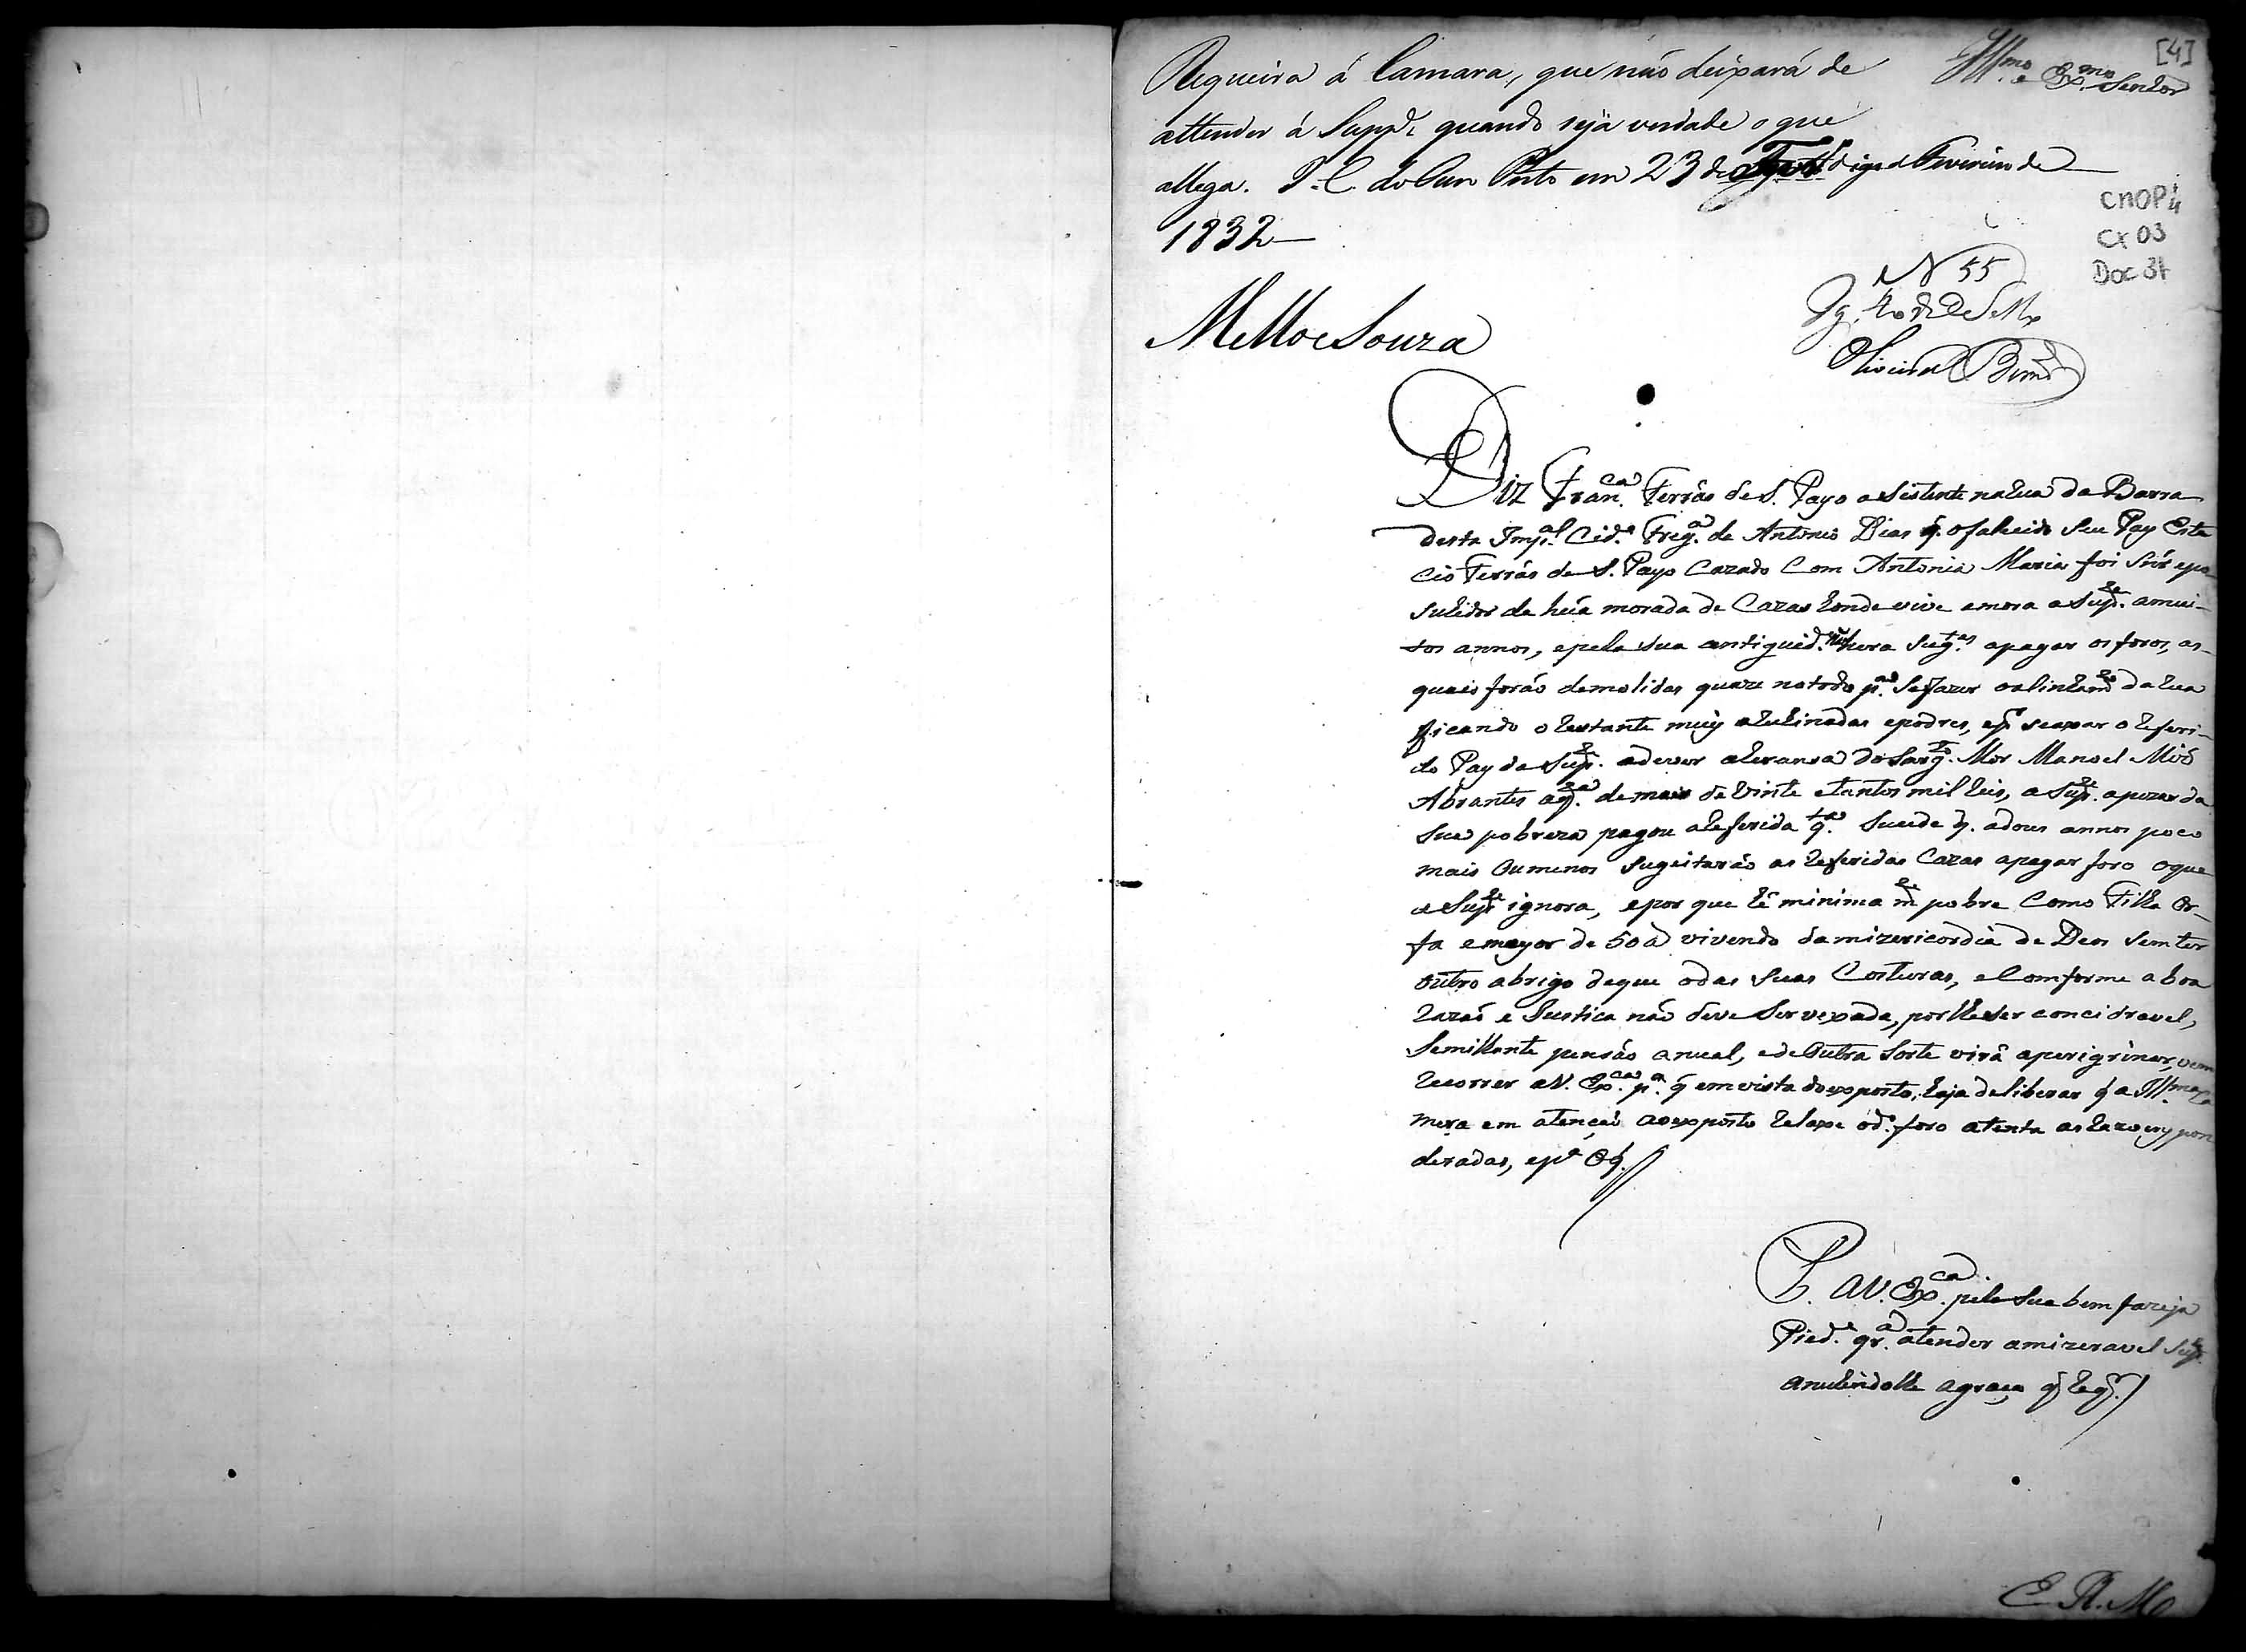 [4]
Illmo e Exmo Senhor
Requeira á Camara, que não deixará de
attender á Suppe quando seja verdade o que
allega. P. C. do Ouro Preto em 23 de digo de Fevereiro de
1832
CMOP
Cx 03
Doc 31
N 55
Mello e Souza
Oliveira
Diz Franca Ferrás de S. Payo asistente na Rua da Barra
desta Impal Cide Frega de Antonio Dias q. o falecido seu Pay Esta
cio Ferrás de S. Payo Cazado Com Antonia Maria foi Snr e po
suhidor de hũa morada de Cazas honde vive e mora a Supe a mui-
tos annos, e pela sua antiguide não hera sugtas a pagar os foros, as
quais forão demolidas quaze no todo pa se fazer o alinhamto da Rua
ficando o Restante muy aRuhinadas e podres, e p seaxar o Referi-
do Pay da Supe a dever a eransa do Sargto Mor Manoel
Abrantes a qta de mais de Vinte e tantos mil Reis, a Supe apezar da
sua pobreza pagou a Referida qta Sucede q. a dous annos poco
mais Ou menos sugeitarão as Referidas Cazas a pagar foro o que
a Supe ignora, e por que hé minima mte pobre Como Filha Or-
fa e mayor de 50 a vivendo da mizericordia de Deos sem ter
outro abrigo do que o das suas Costuras, e Comforme a boa
Razaõ e Justica não deve Ser vexada, por lhe ser concidravel,
Semilhante pensão anual, e de Outra sorte virá a perigrinar, vem
Recorrer a V. Exca pa q em vista do exposto, haja deliberar q a Illma Ca
mera em atenção ao exposto Relaxe o do foro atenta as Razoeys pon
deradas, e pe Oq.
P. a V. Exca pela sua bem fazeja
Piede qra atender a mizeravel Supe
anuhindolhe a graça q Reqr
E. R. Mce